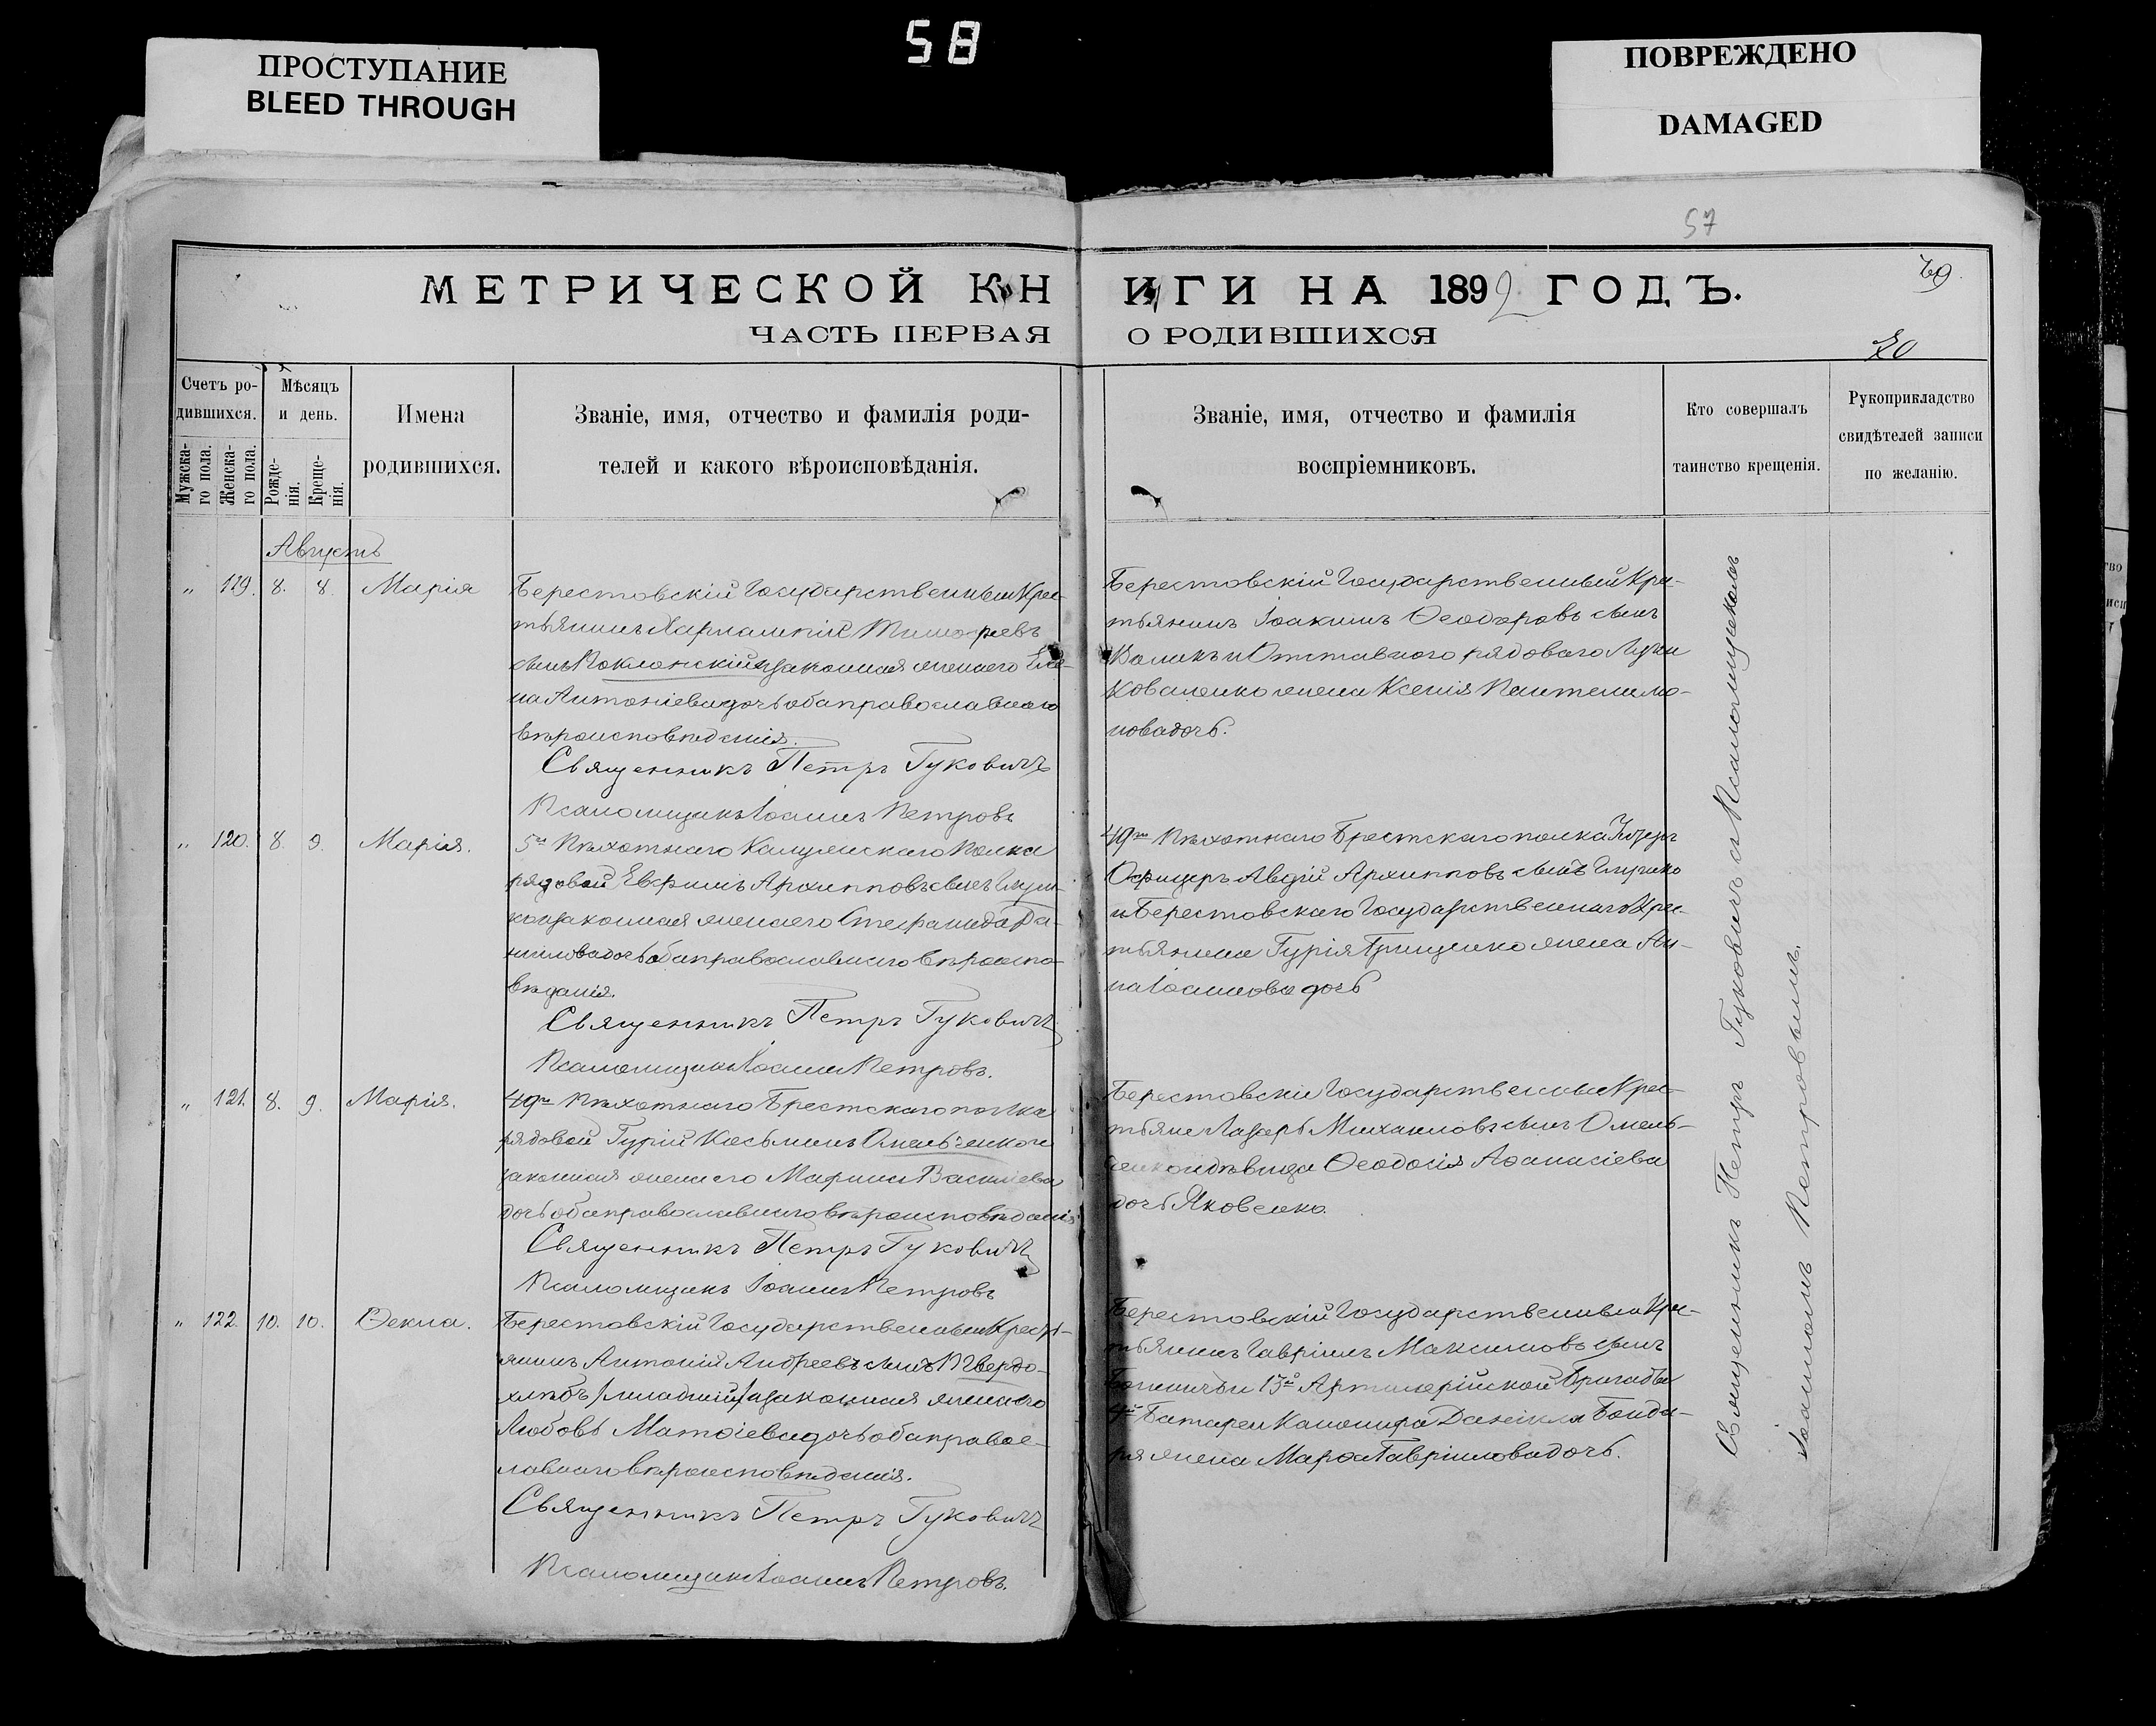 58
ПРОСТУПАНИЕ
BLEED THROUGH
ПОВРЕЖДЕНО
DAMAGED
57
69.
МЕТРИЧЕСКОЙ КНИГИ НА 1892 ГОДЪ.
ЧАСТЬ ПЕРВАЯ О РОДИВШИХСЯ
Счетъ ро-
дившихся.
Мужска-
го пола.
Женска-
го пола.
Мѣсяцъ
и день.
Рожде-
нія.
Креще-
нія.
Имена
родившихся.
Званіе, имя, отчество и фамилія роди-
телей и какого вѣроисповѣданія.
Званіе, имя, отчество и фамилія
воспріемниковъ.
Кто совершалъ
таинство крещенія.
Рукоприкладство
свидѣтелей записи
по желанію.
Августъ
„ 119. 8. 8. Марія
Берестовскій Государственный Крес-
тьянинъ Харлампій Тимофеевъ
сынъ Поклонскій и законная жена его Еле-
на Антоніева дочь оба православнаго
вѣроисповѣданія.
Священникъ Петръ Гуковичъ
Псаломщикъ Іоаннъ Петровъ
Берестовскій Государственный Крес-
тьянинъ Іоакимъ Ѳеодоровъ сынъ
и Отставнаго рядоваго Луки
Коваленко жена Ксенія Пантелимо-
нова дочь.
„ 120. 8. 9. Марія.
5го Пѣхотнаго Калужскаго Полка
рядовой Евфимъ Архипповъ сынъ Глущен-
ко и законная жена его Стефанида Да-
ниилова дочь оба православнаго вѣроиспо-
вѣданія.
Священникъ Петръ Гуковичъ
Псаломщикъ Іоаннъ Петровъ.
49го Пѣхотнаго Брестскаго полка Унтеръ
Офицеръ Авдій Архипповъ сынъ
и Берестовскаго Государственнаго Крес-
тьянина Гурія Грищенко жена Ан-
на Іоаннова дочь
„ 121. 8. 9. Марія.
49го Пѣхотнаго Брестскаго полка
рядовой Гурій Косьминъ Омельченко и
законная жена его Марина Васильева
дочь оба православнаго вѣроисповѣданія
Священникъ Петръ Гуковичъ
Псаломщикъ Іоаннъ Петровъ
Берестовскіе Государственные Крес-
тьяне Лазарь Михаиловъ сынъ Омель-
ченко и дѣвица Ѳеодосія Аѳанасіева
дочь Яковенко.
„ 122. 10. 10. Ѳекла.
Берестовскій Государственный Кресть-
янинъ Антоній Андреевъ сынъ Твердо-
хлѣбъ /младшій/ и законная жена его
Любовь Матѳіева дочь оба правос-
лавнаго вѣроисповѣданія.
Священникъ Петръ Гуковичъ
Псаломщикъ Іоаннъ Петровъ.
Берестовскій Государственный Крес-
тьянинъ Гавріилъ Максимовъ сынъ
и 13й Артилерійской Бригады
4й Батареи Канонира Даніила Бонда-
ря жена Марѳа Гавріилова дочь.
Священникъ Петръ Гуковичъ съ Псаломщикомъ
Іоанномъ Петровымъ.